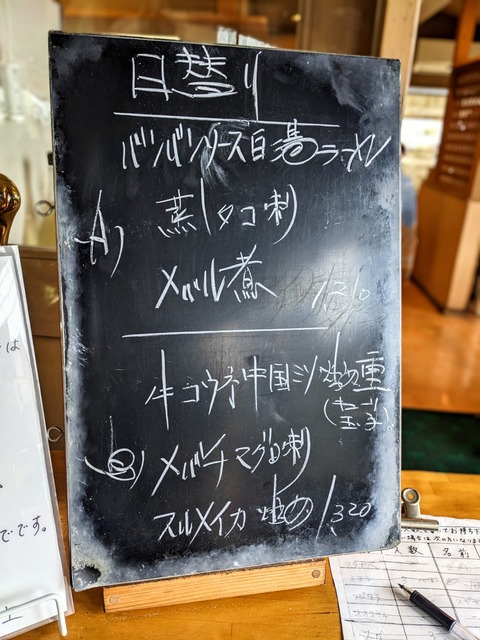 日替り
バンバンソース白湯ラーメン
A) 蒸しタコ刺
メバル煮 1310
牛コウネ中国ミソ炒め重
B) メバチマグロ刺
スルメイカ炒め 1320
は
でです。
人数 名前